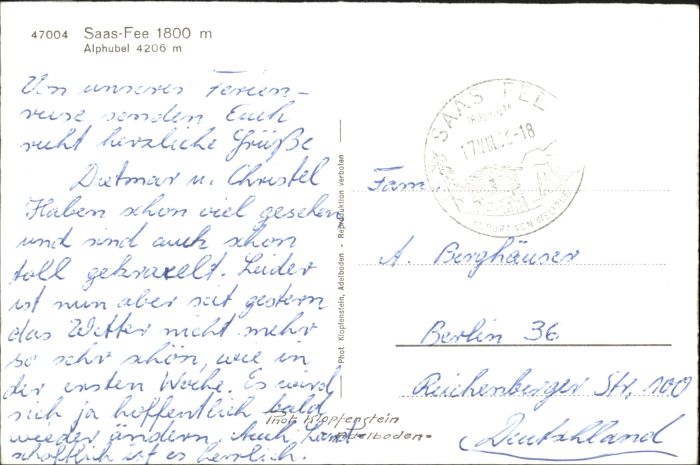 47004 Saas-Fee 1800 m
Alphubel 4206 m
Von unserer Ferien-
reise senden Euch
recht herzliche Grüße
Dietmar u. Christel
Haben schon viel gesehen
und sind auch schon
toll gekraxelt. Leider
ist nun aber seit gestern
das Wetter nicht mehr
so sehr schön, wie in
der ersten Woche. Es wird
sich ja hoffentlich bald
wieder ändern. Auch land-
schaftlich ist es herrlich.
Phot. Klopfenstein
Adelboden
Phot. Klopfenstein, Adelboden - Reproduktion verboten
SAAS FEE
1800 m
-18
Fam.
A. Berghäuser
Berlin 36
Reichenberger Str. 100
Deutschland